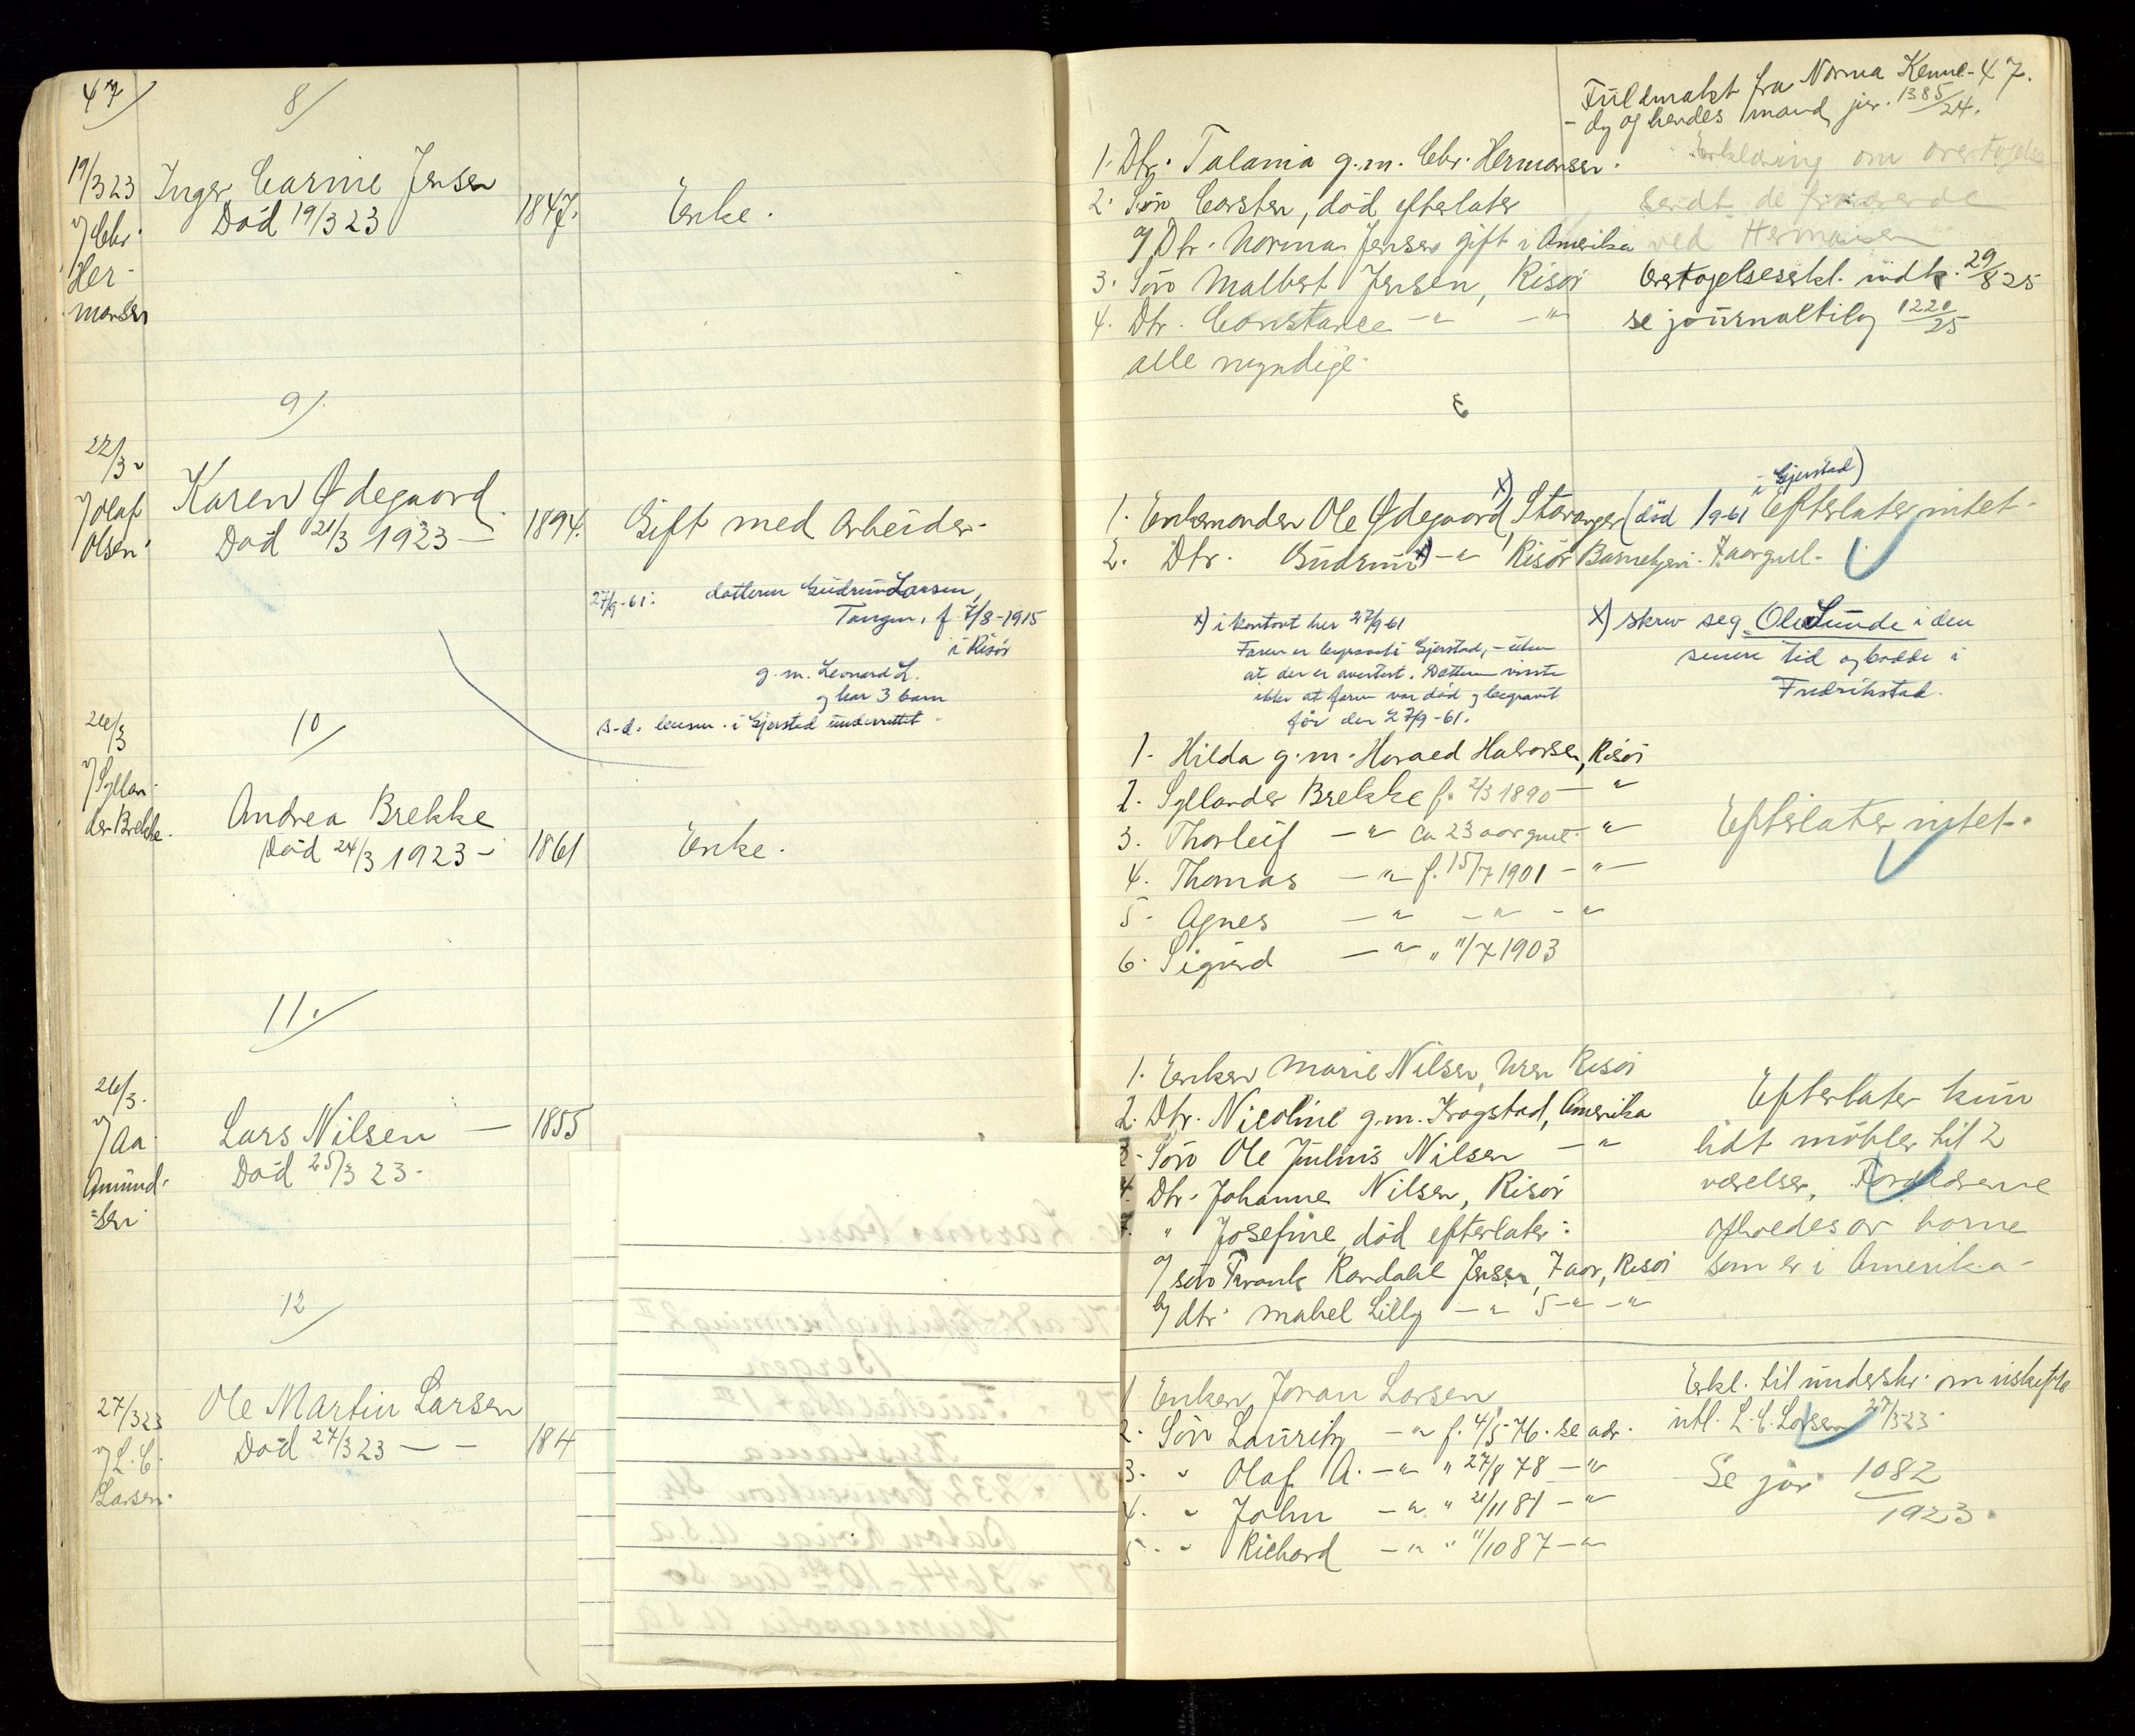 47/
8/
19/3 23
v/ Chr.
Her-
mansen
Inger Carine Jensen
Död 19/3 23
1847.
Enke.
Fuldmakt fra Norma Kenne- 47.
- dy og hendes mand, jnr. 1385/24.
1. Dtr. Talania g.m. Chr. Hermansen.
Erklæring om overtagelse
2. Sön Carsten, död, efterlater
sendt de
a/ Dtr. Norma Jensen gift i Amerika
ved Hermansen
3. Sön Malbert Jensen, Risör
Overtagelseserkl. indk. 29/8 25
4. Dtr. Constance -"- -"-
se journaltilg 1220/25
alle myndige.
9/.
22/3 -
v/ Olaf
Olsen.
Karen Ødegaard
Död 21/3 1923 -
1894.
Gift med Arbeider-
27/9-61: datteren Gudrun Larsen,
Tangen, f. 7/8-1915
i Risör
g.m. Leonard L.
og har 3 barn
s.d. lensm. i Gjerstad underrettet.
1. Enkemanden Ole Ødegaard x), Stavanger (död /9-61 i Gjerstad) Efterlater intet.
2. Dtr. Gudrun x) -"- Risör Barnehjem. 7 aar gml.
x) i kontort her 27/9-61
Faren er begravet i Gjerstad, - uten
at der er avertert. Datteren visste
ikke at faren var död og begravet
för den 27/9-61.
x) skrev seg Ole Lunde i den
senere tid og bodde i
Fredrikstad.
10/
26/3
v/ Syllan-
der Brekke.
Andrea Brekke
Död 24/3 1923 -
1861
Enke.
1. Hilda g.m. Harald Halvorsen, Risör
2. Syllander Brekke f. 2/3 1890 - "
3. Thorleif -"- ca 23 aar gml. -"
4. Thomas -"- f. 15/7 1901 -"-
5. Agnes -"- -"- -"
6. Sigurd -"- " 11/7 1903
Efterlater intet.
11./
26/3.
v/ Aa.
Amund-
sen.
Lars Nilsen -
Död 25/3 23.
1855
1. Enken Marie Nilsen, Uren Risör
2. Dtr. Nicoline g.m. Krogstad, Amerika
3. Sön Ole Julius Nilsen -"
4. Dtr. Johanne Nilsen, Risör
" Josefine, död efterlater:
a/ sön Frank Randahl Jensen, 7 aar, Risör
b/ dtr. Mabel Lilly -"- 5 -"- -"
Efterlater kun
lidt möbler til 2
værelser, Forældrene
avhvedes av barne
som er i Amerika -
12/
27/3 23
v/ L. C.
Larsen.
Ole Martin Larsen
Död 27/3 23 - -
184
1. Enken Joran Larsen
2. Sön Lauritz -"- f. 4/5 76. se adr.
3. " Olaf A. -"- " 27/8 78 -"-
4. " John -"- " 21/11 81 -"
5. " Richard -"- " 11/10 87 -"-
Erkl. til underskr. om uskifte
utl. L. C. Larsen 27/3 23.
Se jnr 1082
1923.
Larsens barn.
Bergen
Kristiania
81 " 232 Convention St.
Baton Rouge U.S.A
87 " 3644 - 10th Ave So
Minneapolis U.S.A